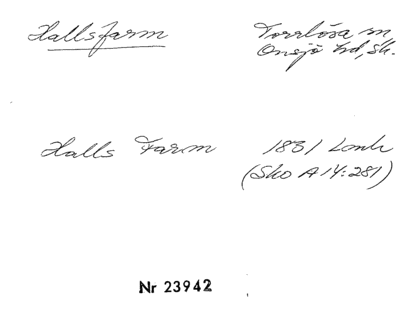 Hallsfarm
Torrlösa sn,
Onsjö hd, Sk.
Halls Farm
1831 Lantm
(Sko A 14:281)
Nr 23942